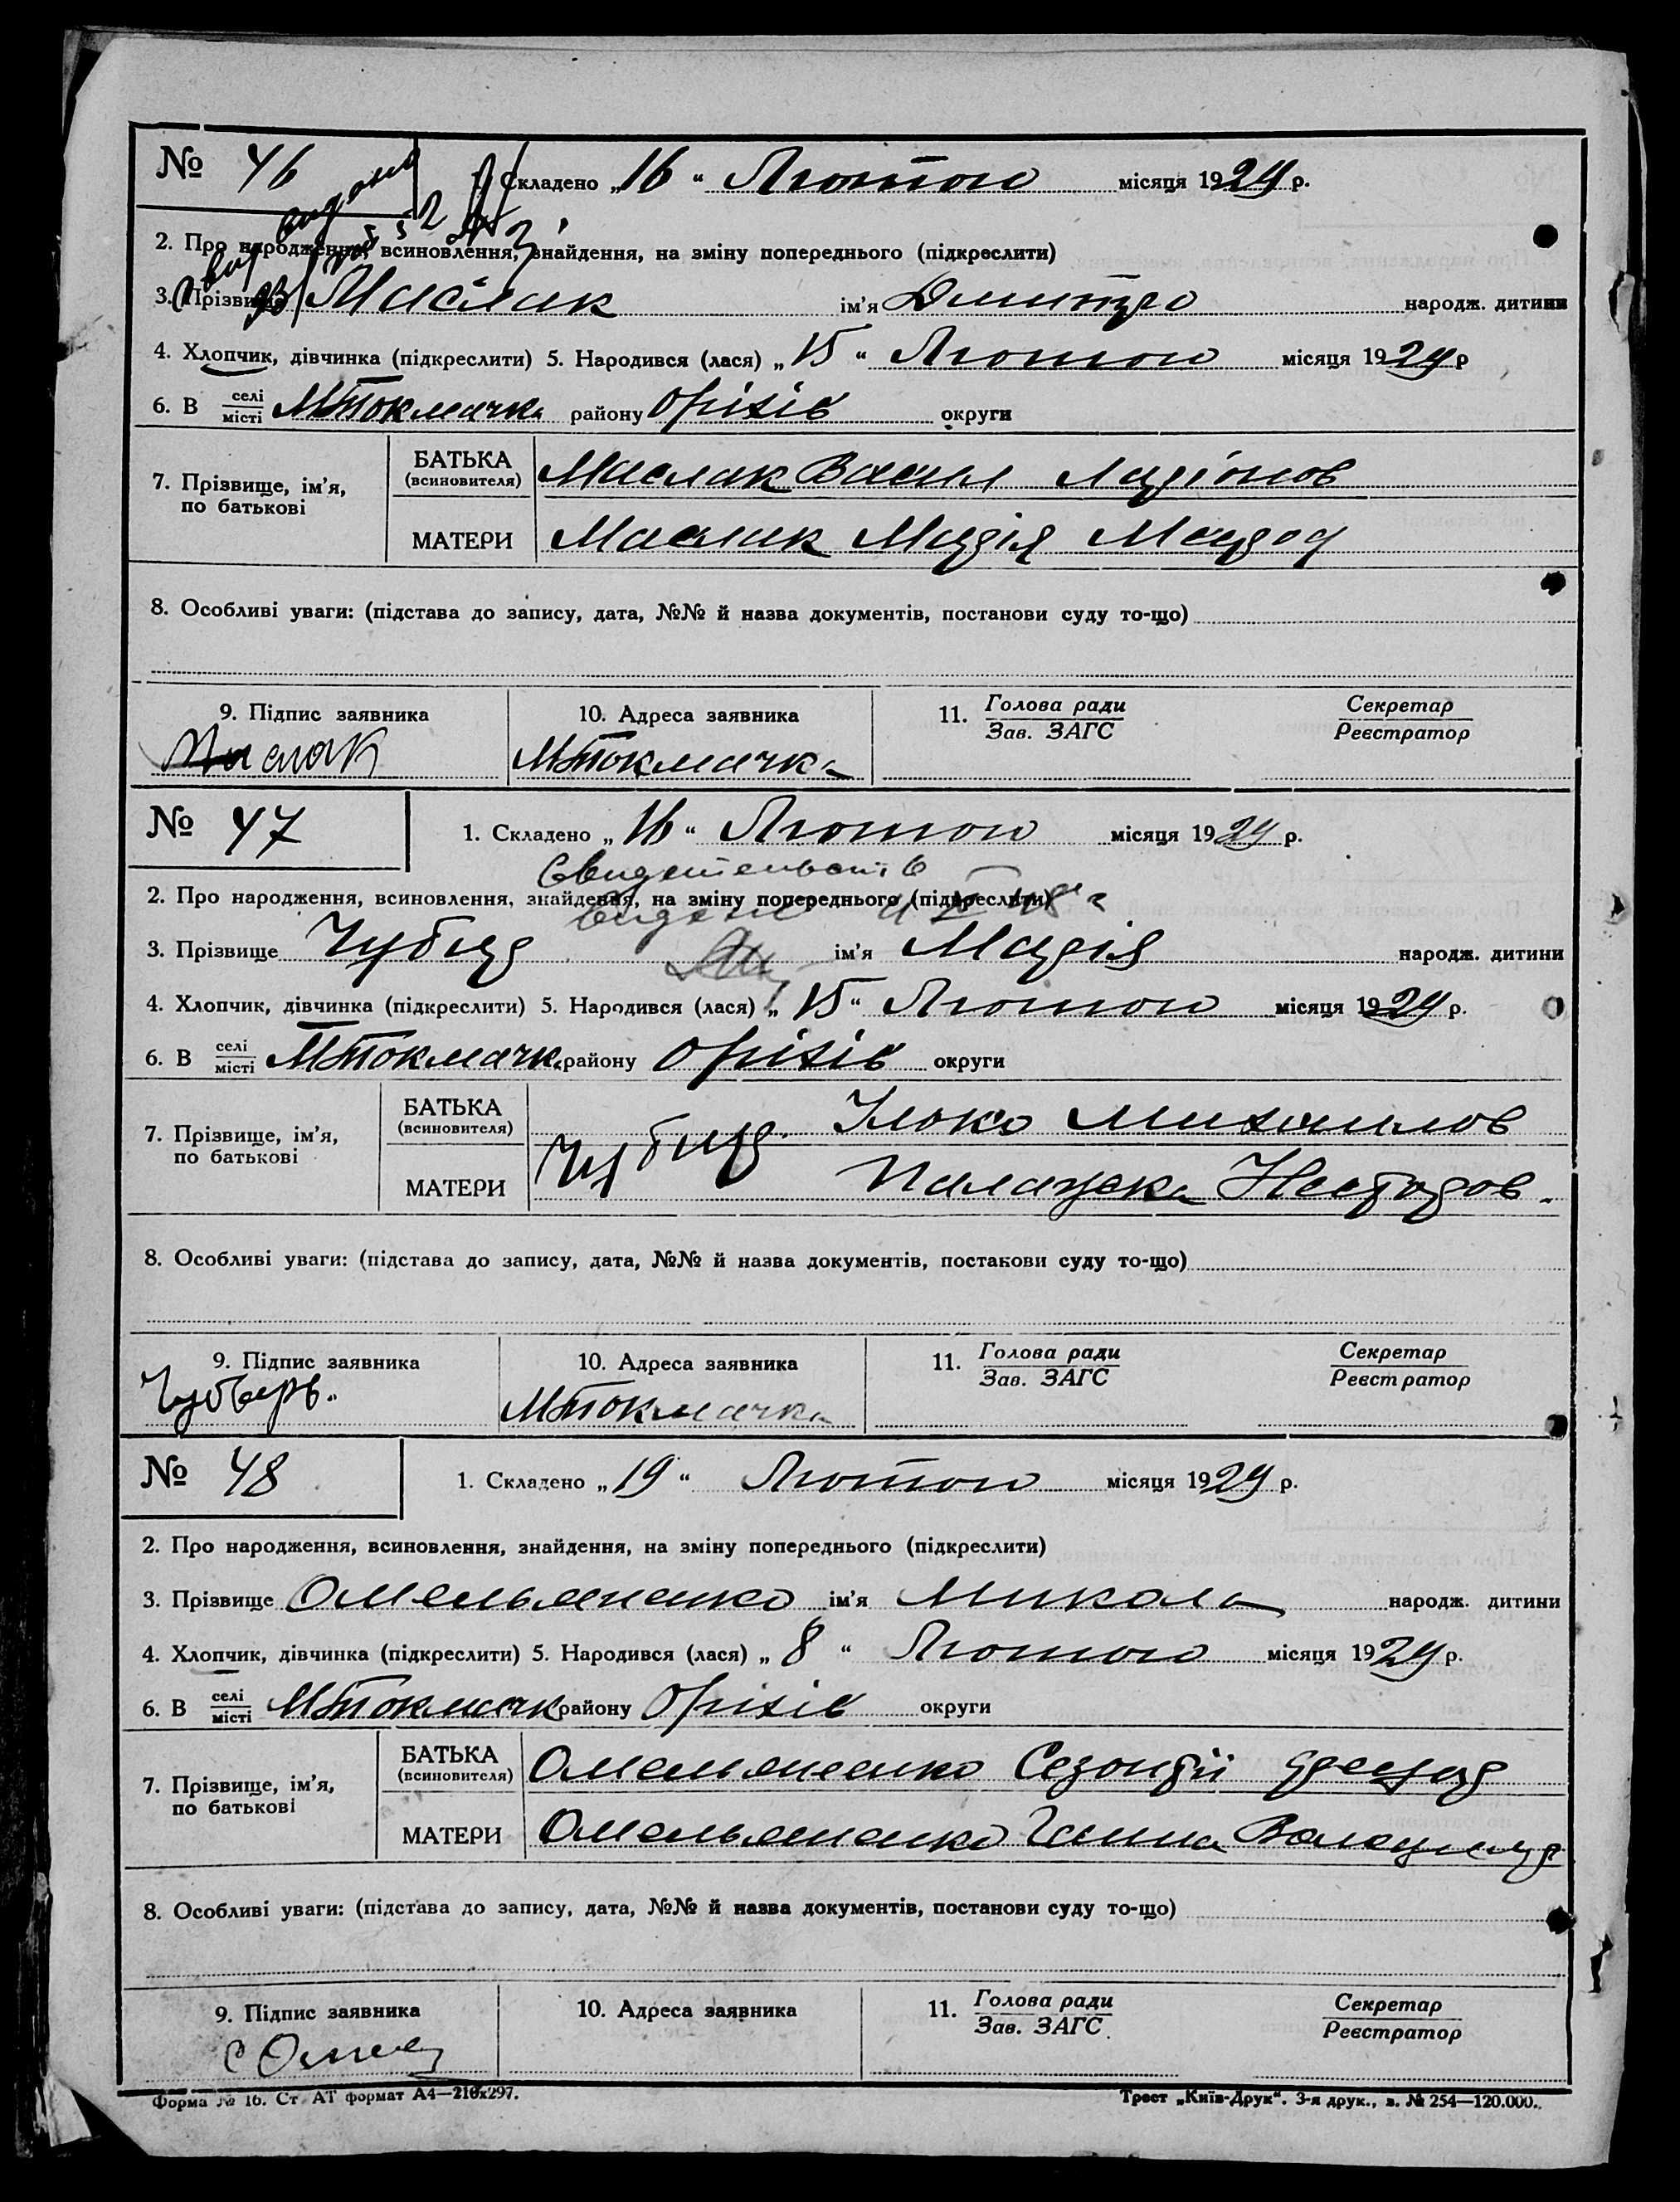 № 46
1. Складено „16“ Лютого місяця 1929 р.
2. Про народження, всиновлення, знайдення, на зміну попереднього (підкреслити)
3. Прізвище Маслак ім'я Дмитро народж. дитини
4. Хлопчик, дівчинка (підкреслити) 5. Народився (лася) „15“ Лютого місяця 1929 р
6. В селі/місті МТокмачка району Оріхів округи
7. Прізвище, ім'я, по батькові
БАТЬКА (всиновителя) Маслак Василь Ларіонов
МАТЕРИ Маслак Марія
8. Особливі уваги: (підстава до запису, дата, №№ й назва документів, постанови суду то-що)
9. Підпис заявника Маслак
10. Адреса заявника МТокмачка
11. Голова ради/Зав. ЗАГС
Секретар/Реєстратор
№ 47
1. Складено „16“ Лютого місяця 1929 р.
2. Про народження, всиновлення, знайдення, на зміну попереднього (підкреслити)
3. Прізвище Чубир ім'я Марія народж. дитини
4. Хлопчик, дівчинка (підкреслити) 5. Народився (лася) „15“ Лютого місяця 1929 р.
6. В селі/місті МТокмачк району Оріхів округи
7. Прізвище, ім'я, по батькові
БАТЬКА (всиновителя) Чубир Ілько Михайлов
МАТЕРИ Палажка
8. Особливі уваги: (підстава до запису, дата, №№ й назва документів, постанови суду то-що)
9. Підпис заявника
10. Адреса заявника МТокмачка
11. Голова ради/Зав. ЗАГС
Секретар/Реєстратор
№ 48
1. Складено „19“ Лютого місяця 1929 р.
2. Про народження, всиновлення, знайдення, на зміну попереднього (підкреслити)
3. Прізвище Омельяненко ім'я Микола народж. дитини
4. Хлопчик, дівчинка (підкреслити) 5. Народився (лася) „8“ Лютого місяця 1929 р.
6. В селі/місті МТокмачк району Оріхів округи
7. Прізвище, ім'я, по батькові
БАТЬКА (всиновителя) Омельяненко
МАТЕРИ Омельяненко Ганна
8. Особливі уваги: (підстава до запису, дата, №№ й назва документів, постанови суду то-що)
9. Підпис заявника
10. Адреса заявника
11. Голова ради/Зав. ЗАГС
Секретар/Реєстратор
Форма № 16. Ст АТ формат А4—210х297.
Трест „Київ-Друк“. 3-я друк., з. № 254—120.000.